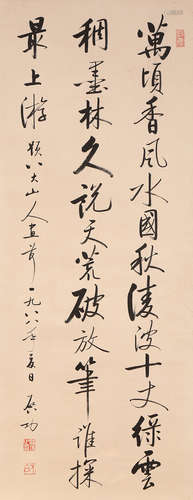 萬頃香風水國秋凌波十丈綠雲
稠畫林久説天荒破放筆誰探
最上游 題八大山人畫荷 一九八六年夏日 啟功